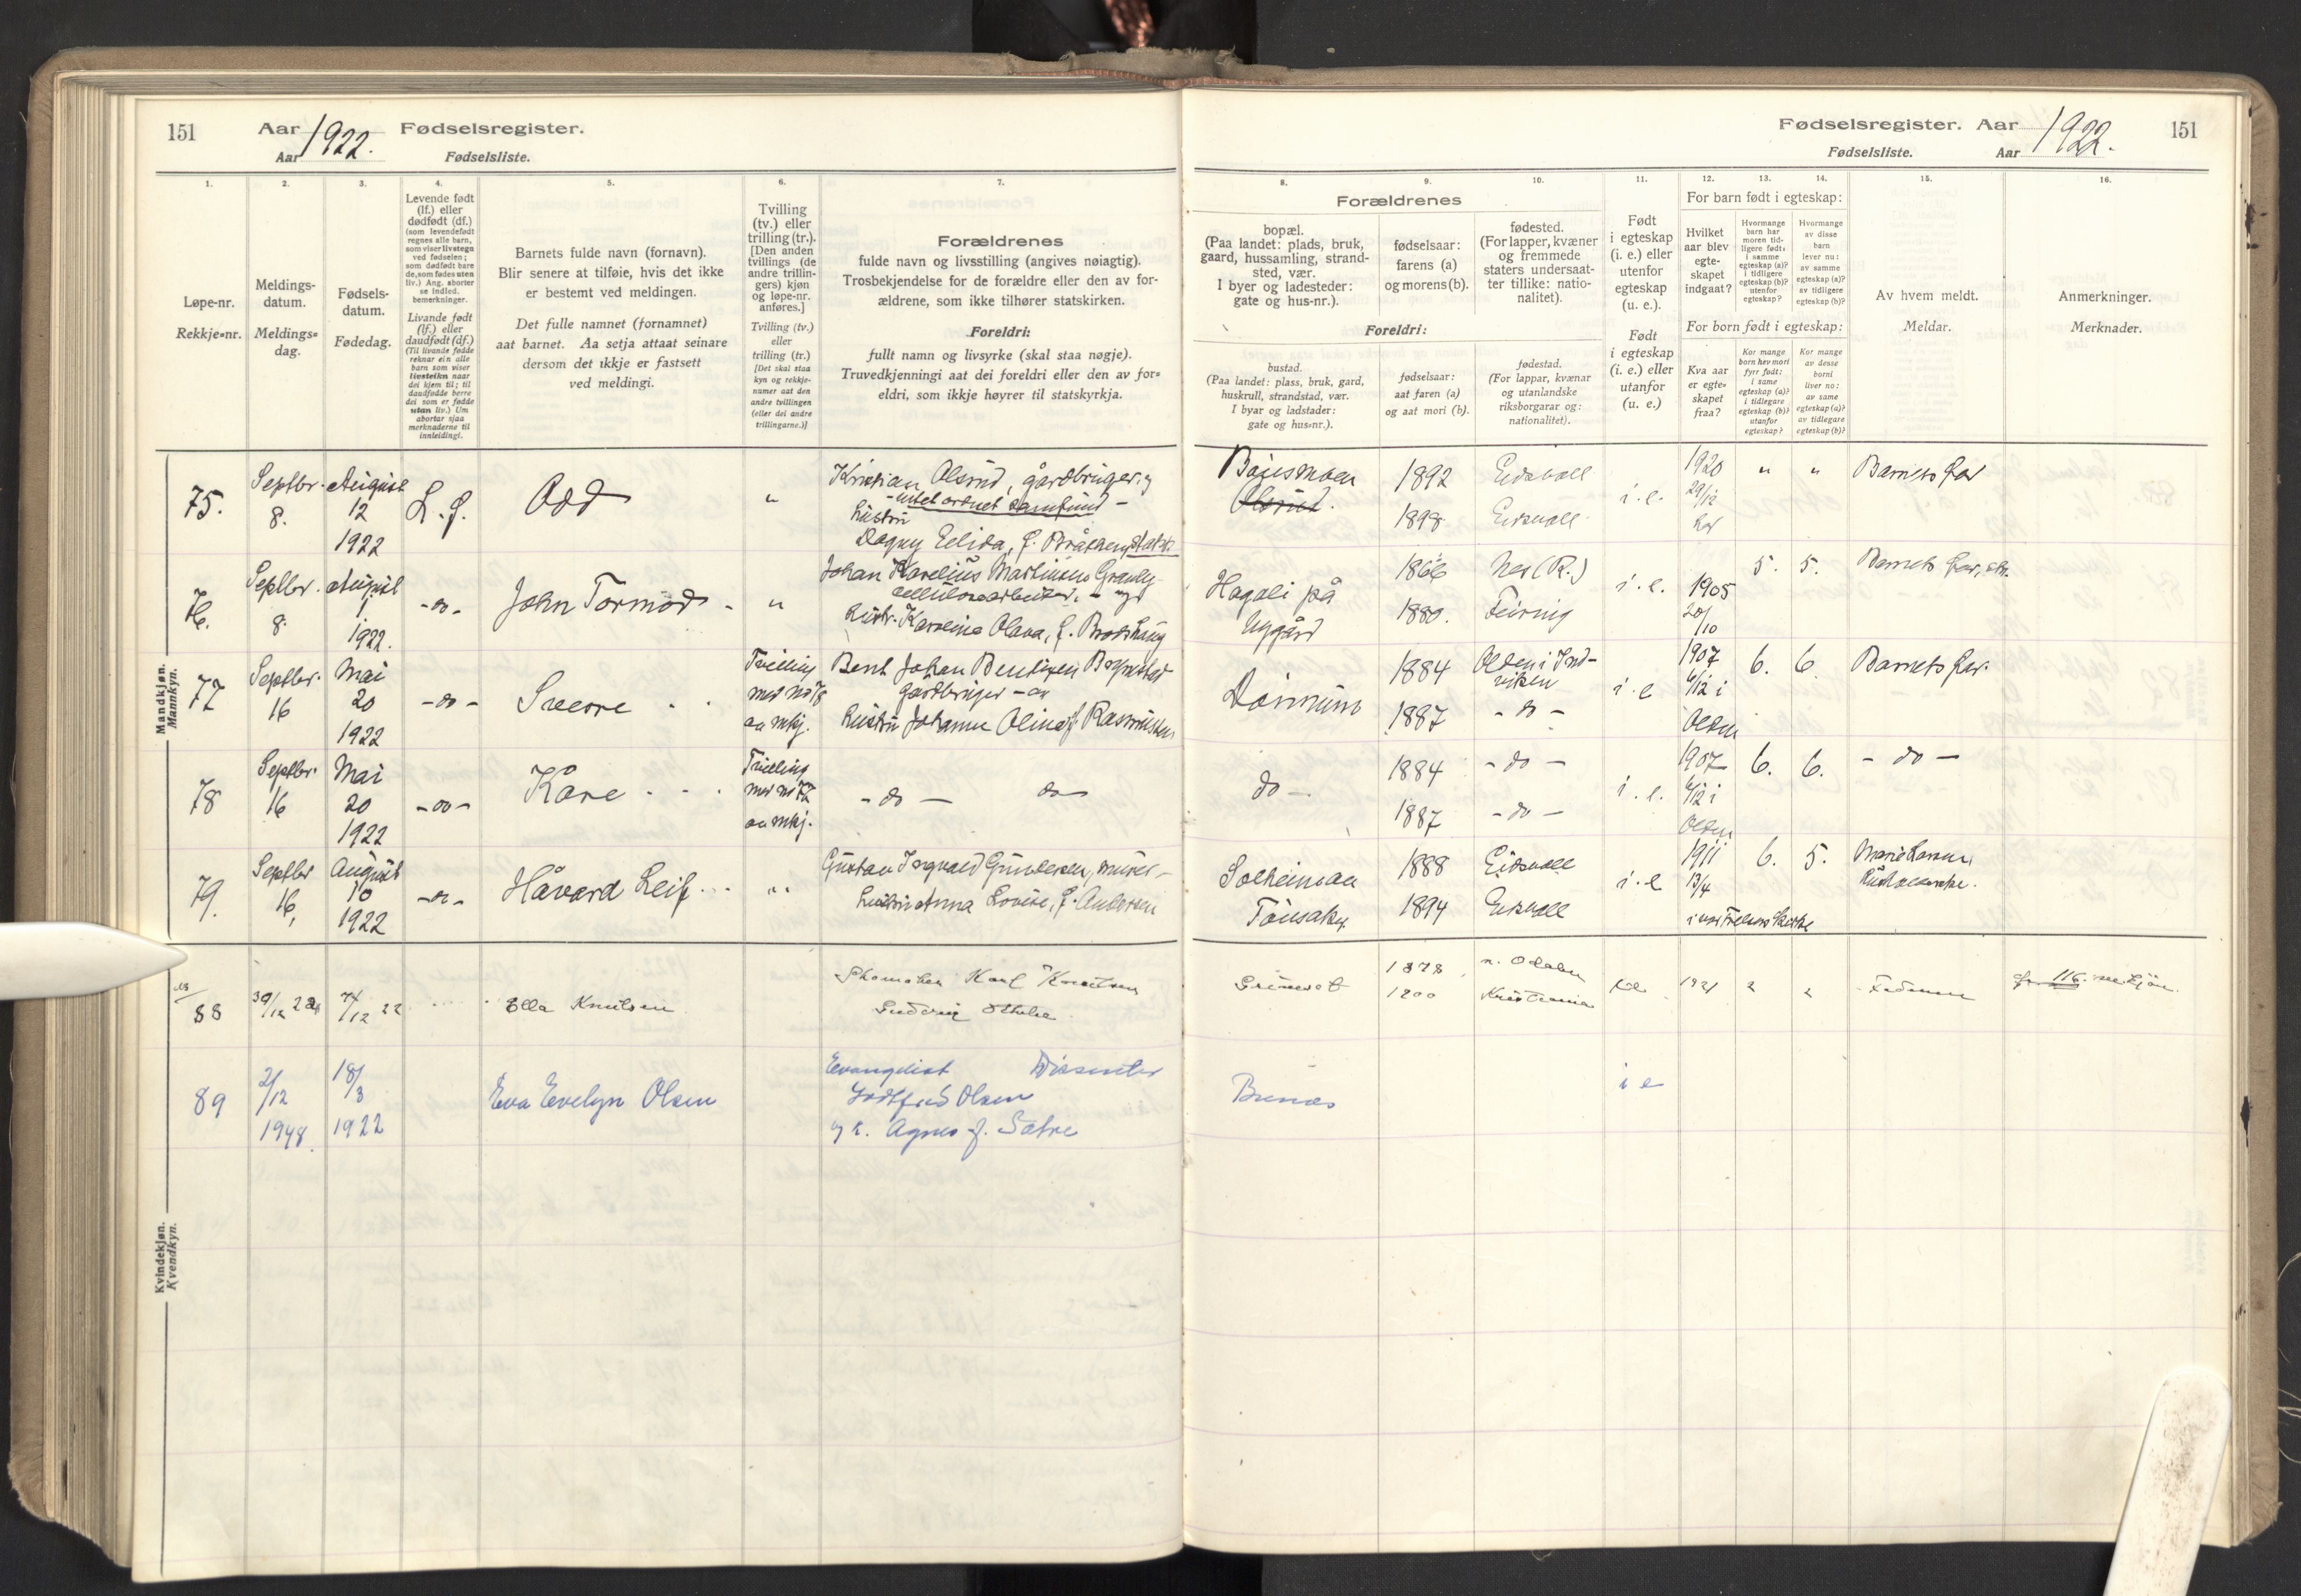 151 Aar 1922. Fødselsregister.
Aar Fødselsliste.
1. 2. 3. 4. 5. 6. 7.
Løpe-nr.
Rekkje-nr.
Meldings-
datum.
Meldings-
dag.
Fødsels-
datum.
Fødedag.
Levende født
(lf.) eller
dødfødt (df.)
(som levendefødt
regnes alle barn,
som viser livstegn
ved fødselen;
som dødfødt bare
de, som fødes uten
liv.) Ang. aborter
se indled.
bemerkninger.
Livande født
(lf.) eller
daudfødt (df.)
(Til livande fødde
reknar ein alle
barn som viser
livsteikn naar
dei kjem til; til
daudfødde berre
dei som er fødde
utan liv.) Um
abortar sjaa
merknaderne til
innleidingi.
Barnets fulde navn (fornavn).
Blir senere at tilføie, hvis det ikke
er bestemt ved meldingen.
Det fulle namnet (fornamnet)
aat barnet. Aa setja attaat seinare
dersom det ikkje er fastsett
ved meldingi.
Tvilling
(tv.) eller
trilling (tr.).
[Den anden
tvillings (de
andre trillin-
gers) kjøn
og løpe-nr.
anføres.]
Tvilling (tv.)
eller
trilling (tr.)
[Det skal staa
kyn og rekkje-
numer aat den
andre tvillingen
(eller dei andre
trillingarne.)]
Forældrenes
fulde navn og livsstilling (angives nøiagtig).
Trosbekjendelse for de forældre eller den av for-
ældrene, som ikke tilhører statskirken.
Foreldri:
fullt namn og livsyrke (skal staa nøgje).
Truvedkjenningi aat dei foreldri eller den av for-
eldri, som ikkje høyrer til statskyrkja.
Mandkjøn.
Mannkyn.
75. Septbr. 8. August 12 1922 L.f. Odd "
Kristian Olsrud, gårdbruger og
hustru
Dagny Elida, f.
76. Septbr. 8. August 1 1922. -do- John Tormod - "
Johan Karelius Martinsen
hustr. Karoline Olava, f.
77 Septbr. 16 Mai 20 1922 -do- Sverre
Tvilling
med no 78
av mkj.
Bent Johan Bentsen
gårdbruger - og
hustru Johanne Olina f. Rasmussen
78 Septbr. 16 Mai 20 1922 -do- Kåre
Tvilling
med no 77
av mkj.
- do - do
79. Septbr 16, August 10 1922 -do- Håvard Leif "
Gustav Ingvald Gundersen, murer -
hustru Anna Lovise, f. Andersen
Kvindekjøn.
Kvendkyn.
88 30/12 22 Ella Knutsen
Skomaker Karl Knutsen
89 2/12 1948. 18/8 1922 Eva Evelyn Olsen
Evangelist Dissenter
Godtfred Olsen
og h. Agnes f. Sætre
Fødselsregister. Aar 1922. 151
Fødselsliste. Aar
8. 9. 10. 11. 12. 13. 14. 15. 16.
Forældrenes
bopæl.
(Paa landet: plads, bruk,
gaard, hussamling, strand-
sted, vær.
I byer og ladesteder:
gate og hus-nr.).
fødselsaar:
farens (a)
og morens (b).
fødested.
(For lapper, kvæner
og fremmede
staters undersaat-
ter tillike: natio-
nalitet).
Foreldri:
bustad.
(Paa landet: plass, bruk, gard,
huskrull, strandstad, vær.
I byar og ladstader:
gate og hus-nr.).
fødselsaar:
aat faren (a)
og aat mori (b).
fødestad.
(For lappar, kvænar
og utanlandske
riksborgarar og:
nationalitet).
Født
i egteskap
(i. e.) eller
utenfor
egteskap
(u. e.).
Født
i egteskap
(i. e.) eller
utanfor
(u. e.)
For barn født i egteskap:
Hvilket
aar blev
egte-
skapet
indgaat?
Hvormange
barn har
moren tid-
ligere født:
i samme
egteskap (a)?
i tidligere
egteskap (b)?
utenfor
egteskap?
Hvormange
av disse
barn
lever nu:
av samme
egteskap (a)?
av tidligere
egteskap (b)?
For born født i egteskap:
Kva aar
er egte-
skapet
fraa?
Kor mange
born hev mori
fyrr født:
i same
egteskap (a)?
i tidlegare
egteskap (b)?
utanfor
egteskap?
Kor mange
av desse
borni
liver no:
av same
egteskap (a)?
av tidlegare
egteskap (b)?
Av hvem meldt.
Meldar.
Anmerkninger.
Merknader.
1892 Eidsvoll i. e. 1920 " " Barnets far
Olsrud. 1898 Eidsvoll 29/12
Hagali på 1866 Nes (R.) i. e. 1905 5. 5. Barnets far,
Nygård 1880. Feiring 20/10
1884 Olden i Ind-
viken i. e 1907 6. 6. Barnets far.
1887 - do - 6/12 i
Olden
do - 1884 - do - i. e. 1907 6. 6. - do -
1887 - do - 6/12 i
Olden
Solheim 1888 Eidsvoll i. e 1911 6. 5.
1894 Eidsvoll 13/4
1878 n. Odalen 1921 2 2 Faderen
1900 Kristiania
i e